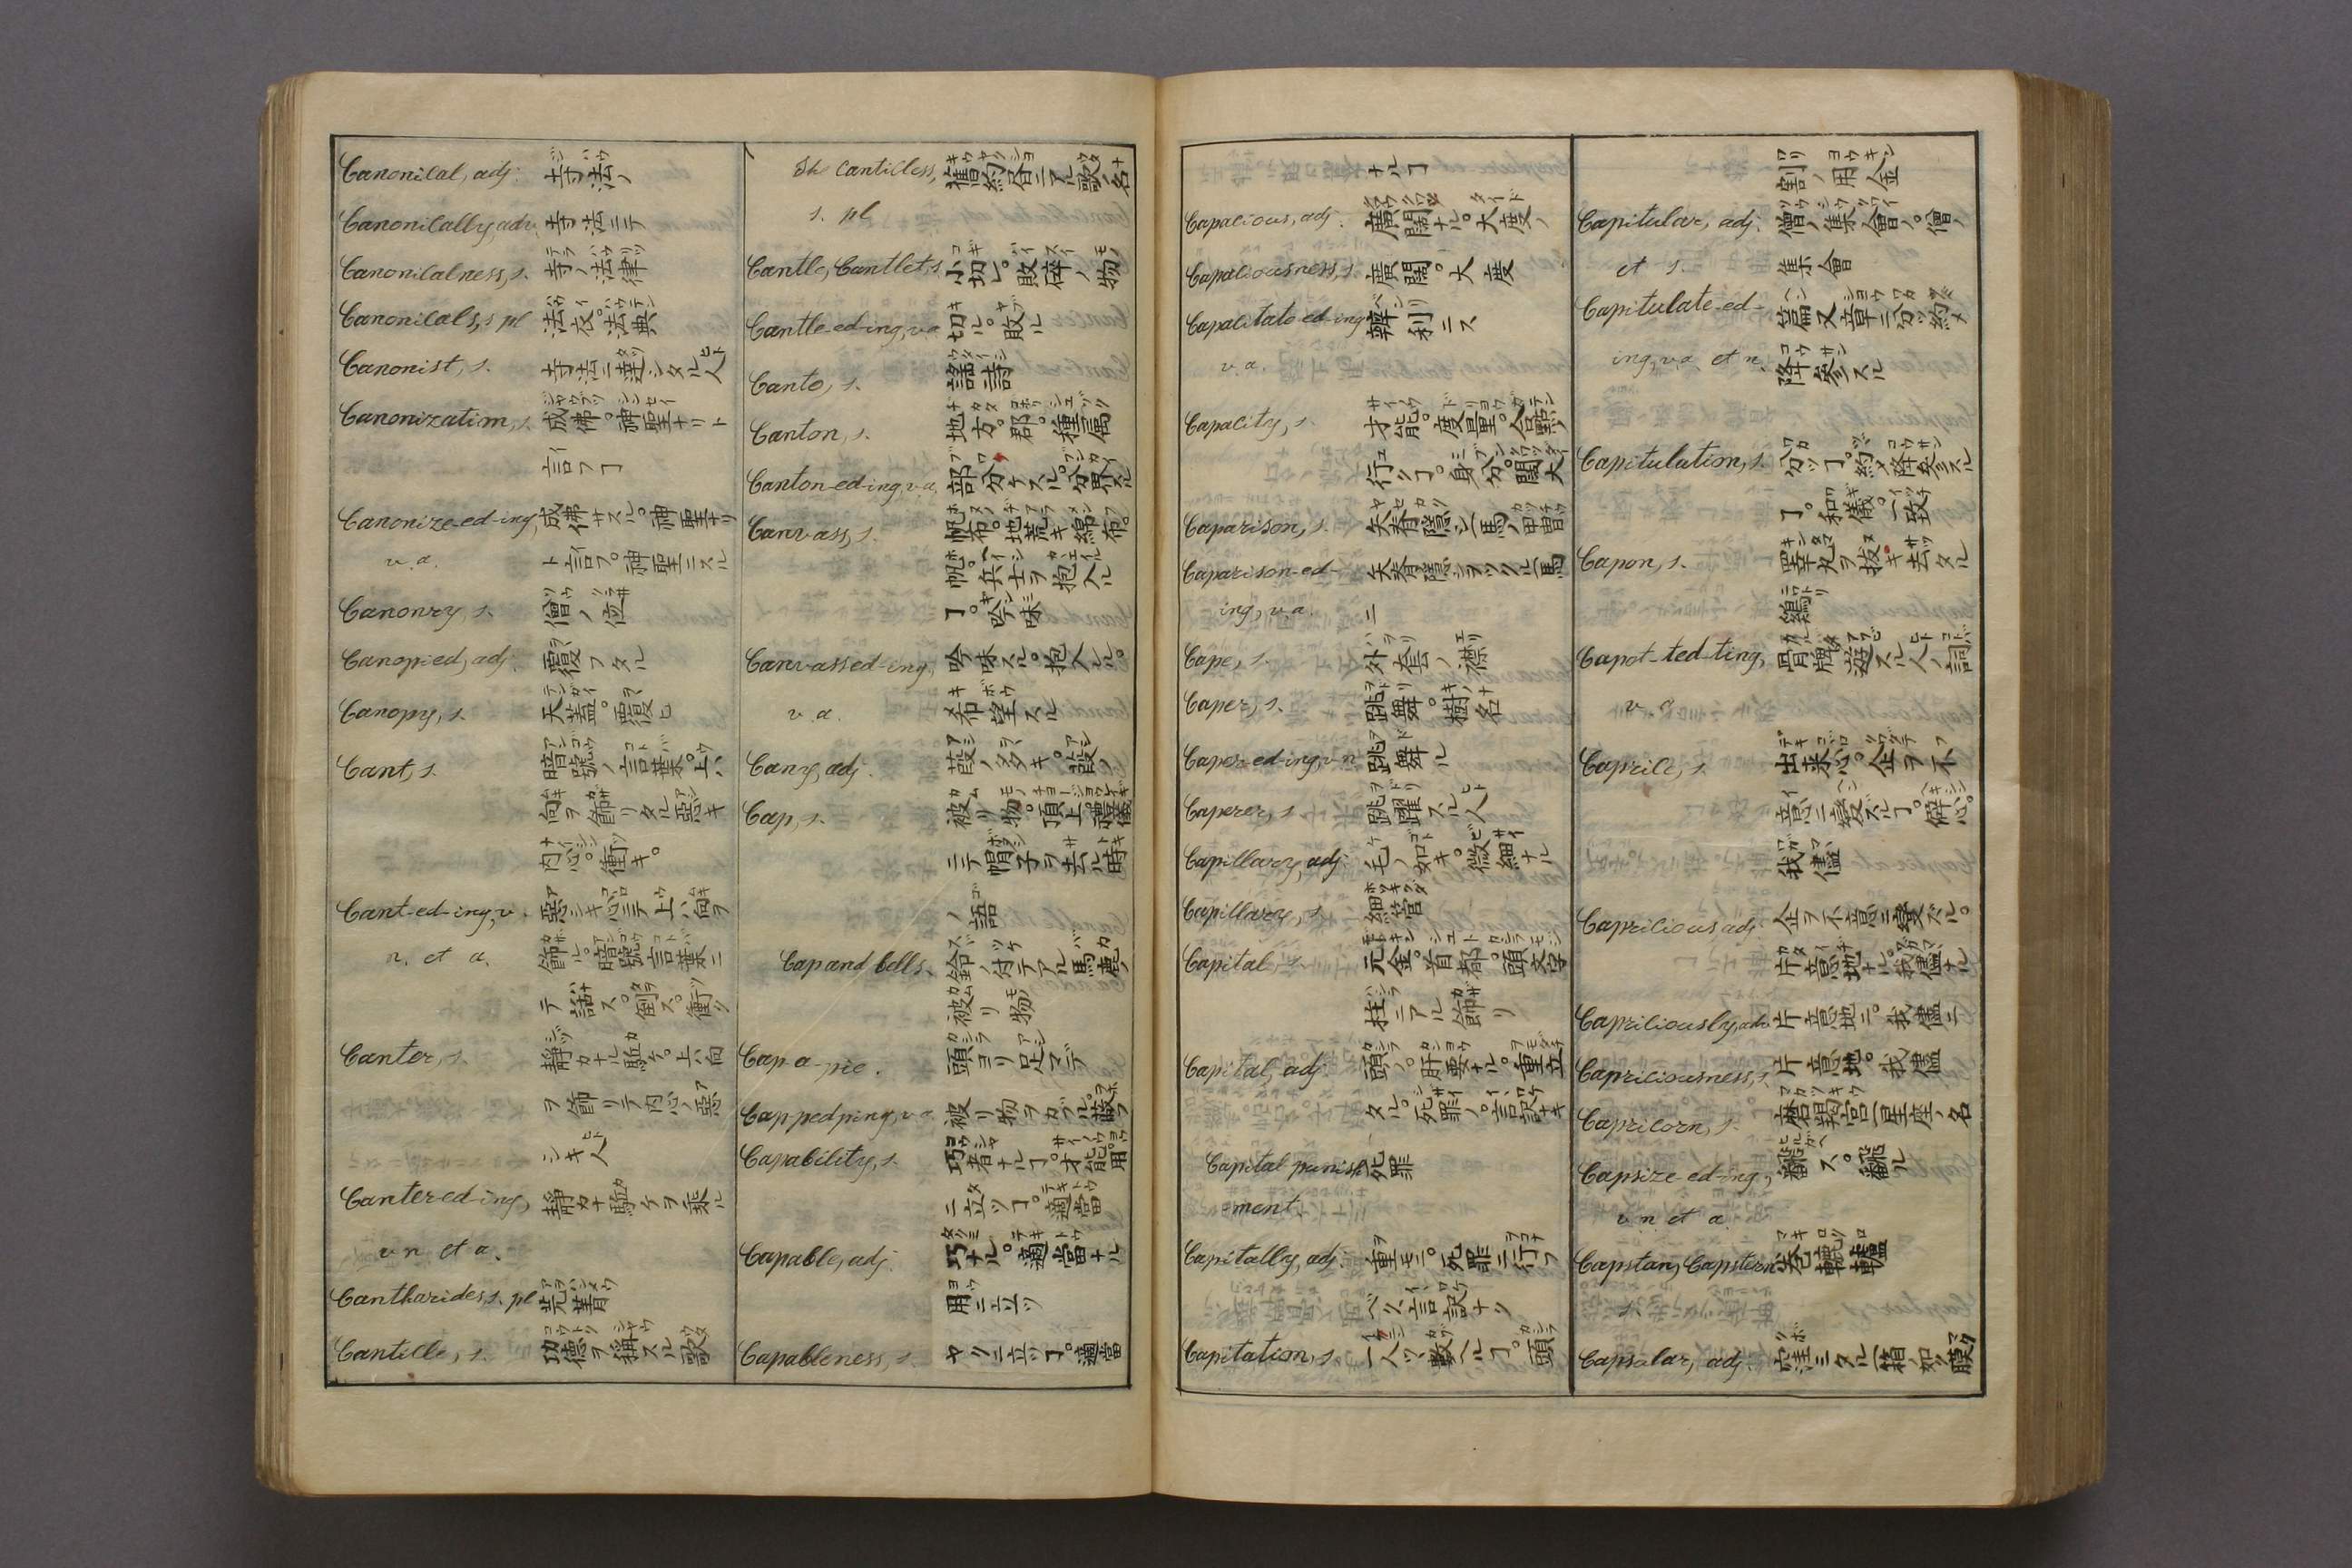 Canonical, adj. 寺法ノ
Canonically, adv. 寺法ニテ
Canonicalness, s. 寺ノ法律
Canonicals, s. pl 法衣。法典
Canonist, s. 寺法ニ達シタル人
Canonization, s. 成佛。神聖ナリト
言フヿ
Canonize-ed-ing, 成佛サスル。神聖ナリ
v. a. ト言フ。神聖ニスル
Canonry, s. 僧ノ位
Canopied, adj. 覆フタル
Canopy, s. 天蓋。覆ヒ
Cant, s. 暗號ノ言葉。上ハ
向ヲ飾リタル惡キ
内心。衝キ。
Cant-ed-ing, v. 惡シキ心ニテ上ハ向ヲ
n. et a. 飾ル。暗號言葉ニ
テ話ス。倒ス。衝ク
Canter, s. 靜カナル駈ケ。上ハ向
ヲ飾リテ内心ノ惡
シキ人
Canter-ed-ing, 靜カナ駈ケヲ乘ル
v n et a.
Cantharides, s. pl 芫菁
Canticle, s. 功德ヲ稱スル歌
The Canticless, 舊約書ニアル歌ノ名
s. pl
Cantle, Cantlet, s. 小切レ。敗碎ノ物
Cantle-ed-ing, v a 切ル。敗ル
Canto, s. 謠詩
Canton, s. 地方。郡。種屬
Canton-ed-ing, v a. 部分ケスル。分界スル
Canvass, s. 帆布。地荒キ綿布。
帆。兵士ヲ抱入ル
ヿ。吟味
Canvassed-ing, 吟味スル。抱入ル。
v. a. 希望スル
Cany, adj. 葭ノ多キ。葭ノ
Cap, s. 被リ物。頂上。禮儀
ニテ帽子ヲ去ル時
ノ語
Cap and bells. 鈴ノ付テアル馬鹿ノ
被リ物
Cap-a-pie. 頭ヨリ足マデ
Cap-ped-ping, v a 被リ物ヲカブル。蔽フ
Capability, s. 巧者ナルヿ。才能。用
ニ立ツヿ。適當
Capable, adj. 巧ナル。適當ナル
用ニ立ツ
Capableness, s. ヤクニ立ツヿ。適當
ナルヿ
Capacious, adj. 廣闊ナル。大度ノ
Capaciousness, s. 廣闊。大度
Capacitate-ed-ing 辨利ニス
v. a.
Capacity, s. 才能。度量。合點ノ
行クヿ。身分。闊大
Caparison, s. 矢脊隱シ(馬ノ甲冑
Caparison-ed- 矢脊隱シヲツクル(馬
ing, v. a. ニ
Cape, s. 外套ノ襟
Caper, s. 跳舞。樹ノ名
Caper-ed-ing, v n 跳舞ル
Caperer, s. 跳躍スル人
Capillary, adj. 毛ノ如キ。微細ナル
Capillary, s. 細管
Capital, s. 元金。首都。頭文字
柱ニアル飾リ
Capital, adj. 頭ノ。肝要ナル。重立
タル。死罪ノ。言訳ナキ
Capital punish 死罪
-ment.
Capitally, adj. 重モニ。死罪ニ行フ
ベク。言訳ナク
Capitation, s. 一人ツヽ數ヘルヿ。頭
割ノ用金
Capitular, adj. 僧ノ集會ノ。僧ノ
et s. 集會
Capitulate-ed- 篇又章ニ分ツ。約メ
ing, v. a et n. 降參スル
Capitulation, s. 分ツヿ。約メ降參スル
ヿ。和儀。一致
Capon, s. 睪丸ヲ抜キ去ツタル
鷄
Capot-ted-ting, 骨牌遊スル人ノ詞
v a
Caprice, s. 出来心。企ヲ不
意ニ變ズルヿ。僻心。
我儘
Capricious adj. 企ヲ不意ニ變ズル。
片意地ナル。我儘ナル
Capriciously, adv 片意地ニ。我儘ニ
Capriciousness, s. 片意地。我儘
Capricorn, s. 磨羯宮(星座ノ名
Capsize-ed-ing, 飜ス。飜ル
v n et a
Capstan, Capstern 卷轆轤
s.
Capsular, adj. 空洼ミタル(箱ノ如ク膜